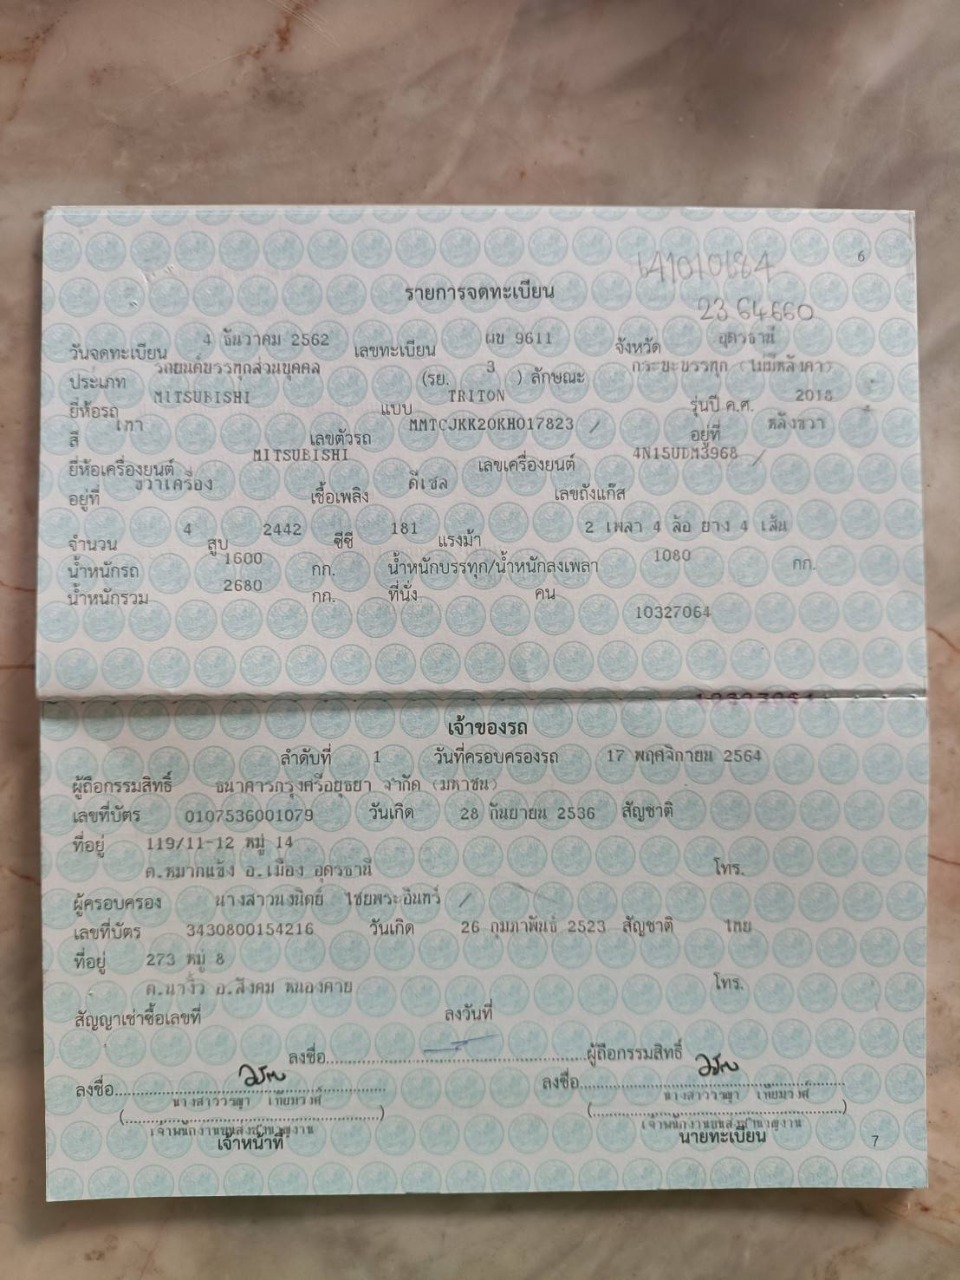 6
141010684
รายการจดทะเบียน
23 64660
วันจดทะเบียน 4 ธันวาคม 2562 เลขทะเบียน ผบ 9611 จังหวัด อุดรธานี
ประเภท รถยนต์บรรทุกส่วนบุคคล (รย. 3 ) ลักษณะ กระบะบรรทุก (ไม่มีหลังคา)
ยี่ห้อรถ MITSUBISHI แบบ TRITON รุ่นปี ค.ศ. 2018
สี เทา เลขตัวรถ MMTCJKK20KH017823 อยู่ที่ หลังขวา
ยี่ห้อเครื่องยนต์ MITSUBISHI เลขเครื่องยนต์ 4N15UDM3968
อยู่ที่ ขวาเครื่อง เชื้อเพลิง ดีเซล เลขถังแก๊ส
จำนวน 4 สูบ 2442 ซีซี 181 แรงม้า 2 เพลา 4 ล้อ ยาง 4 เส้น
น้ำหนักรถ 1600 กก. น้ำหนักบรรทุก/น้ำหนักลงเพลา 1080 กก.
น้ำหนักรวม 2680 กก. ที่นั่ง คน
10327064
เจ้าของรถ
ลำดับที่ 1 วันที่ครอบครองรถ 17 พฤศจิกายน 2564
ผู้ถือกรรมสิทธิ์ ธนาคารกรุงศรีอยุธยา จำกัด (มหาชน)
เลขที่บัตร 0107536001079 วันเกิด 28 กันยายน 2536 สัญชาติ
ที่อยู่ 119/11-12 หมู่ 14
ต.หมากแข้ง อ.เมือง อุดรธานี โทร.
ผู้ครอบครอง นางสาวนงนิตย์ ไชยพระอินทร์
เลขที่บัตร 3430800154216 วันเกิด 26 กุมภาพันธ์ 2523 สัญชาติ ไทย
ที่อยู่ 273 หมู่ 8
ต.นางิ้ว อ.สังคม หนองคาย โทร.
สัญญาเช่าซื้อเลขที่ ลงวันที่
ลงชื่อ..........ผู้ถือกรรมสิทธิ์
ลงชื่อ.......... ลงชื่อ..........
(นางสาววรญา เทียมวงศ์) (นางสาววรญา เทียมวงศ์)
เจ้าพนักงานขนส่งชำนาญงาน เจ้าพนักงานขนส่งชำนาญงาน
เจ้าหน้าที่ นายทะเบียน 7